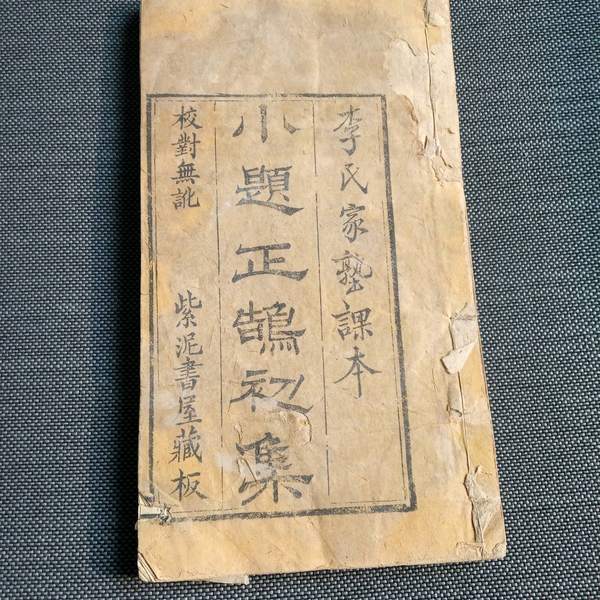 李氏家塾課本
小題正鵠初集
校對無訛
紫泥書屋藏板